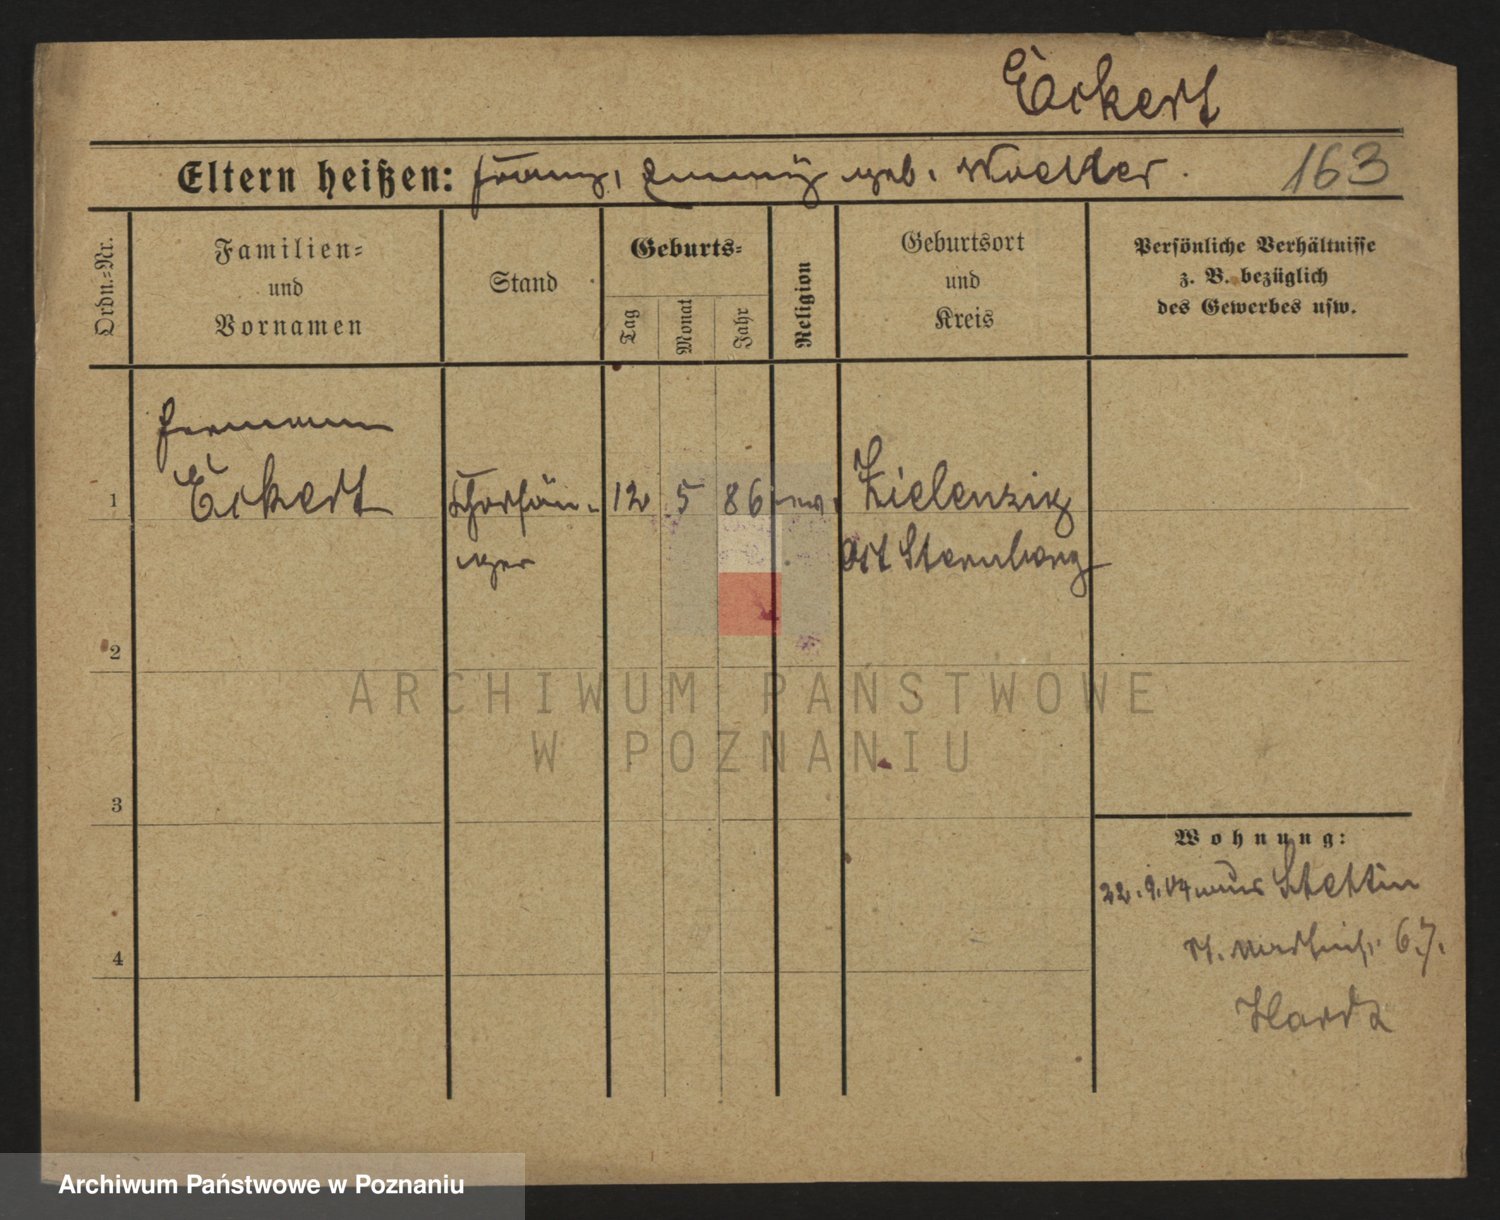 Eckert
Eltern heißen: Franz, geb. Woelter. 163
Ordn.=Nr.
Familien=
und
Vornamen
Stand
Geburts=
Tag
Monat
Jahr
Religion
Geburtsort
und
Kreis
Persönliche Verhältnisse
z. B. bezüglich
des Gewerbes usw.
Hermann
1 Eckert Chorsän- 12 5 86 ev. Zielenzig
ger Ost Sternberg
2
ARCHIWUM PAŃSTWOWE
W POZNANIU
3
Wohnung:
22.9.04 aus Stettin
St. 67.
4
Archiwum Państwowe w Poznaniu